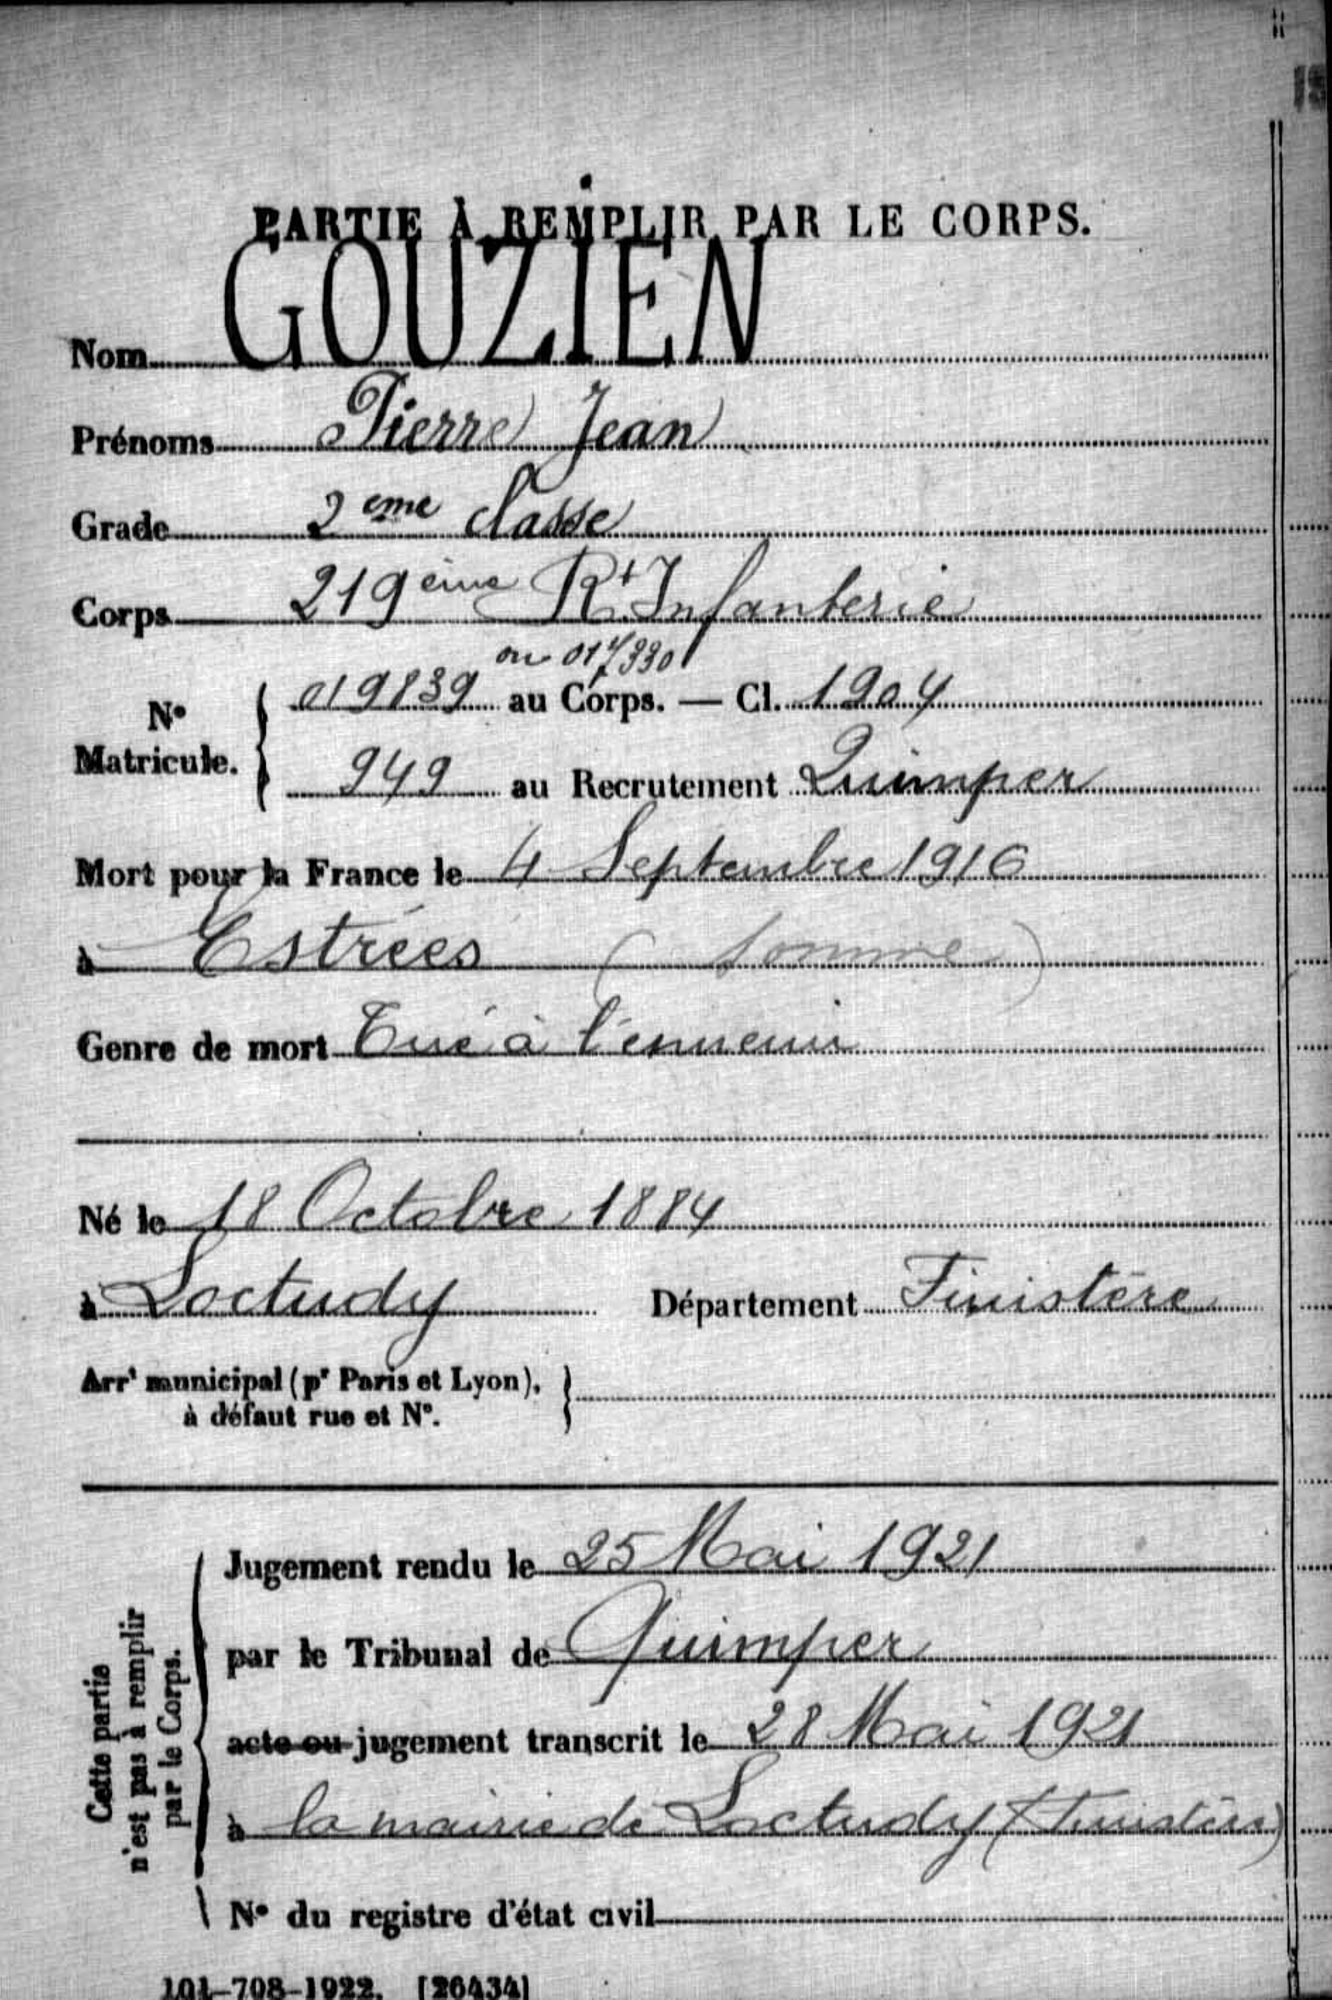 PARTIE À REMPLIR PAR LE CORPS.
Nom GOUZIEN
Prénoms Pierre Jean
Grade 2 eme classe
Corps 219 ème Rt Infanterie
ou 017330
N° Matricule. 019839 au Corps. — Cl. 1904
949 au Recrutement Quimper
Mort pour la France le 4 Septembre 1916
à Estrées (Somme)
Genre de mort Tué à l'ennemi
Né le 18 Octobre 1884
à Loctudy Département Finistère
Arrt municipal (pr Paris et Lyon),
à défaut rue et N°.
Cette partie
n'est pas à remplir
par le Corps.
Jugement rendu le 25 Mai 1921
par le Tribunal de Quimper
acte ou jugement transcrit le 28 Mai 1921
à la mairie de Loctudy (Finistère)
N° du registre d'état civil
101-708-1922. [26434]